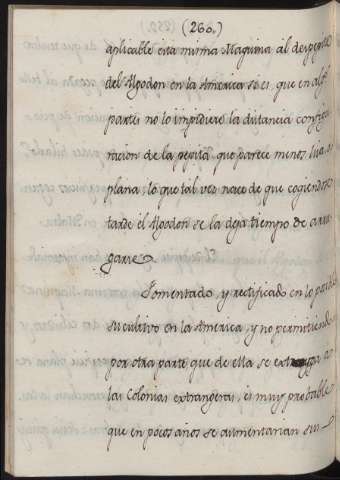 (260.)
aplicable esta misma Maquina al despepite
del Algodon en la America si es, que en alg.s
partes no lo impidiere la distancia configu
racion de la pepita, que parece menos lisa, o
plana; lo que tal ves nace de que cogiendose
tarde el Algodon se la deja tiempo de arru
garse.
Fomentado, y rectificado en lo posible
su cultivo en la America, y no permitiendo
por otra parte que de ella se extraiga a
las Colonias extrangeras, es muy probable
que en pocos años se aumentarian sus